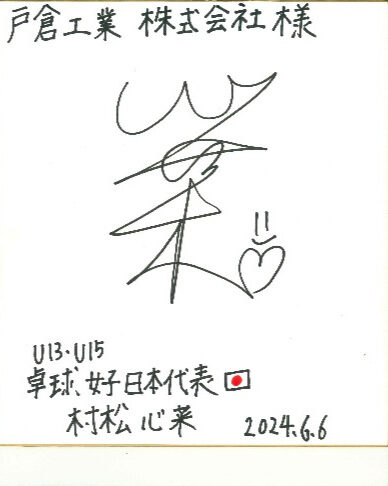 戸倉工業 株式会社 様
U13・U15
卓球女子日本代表
村松心菜 2024.6.6